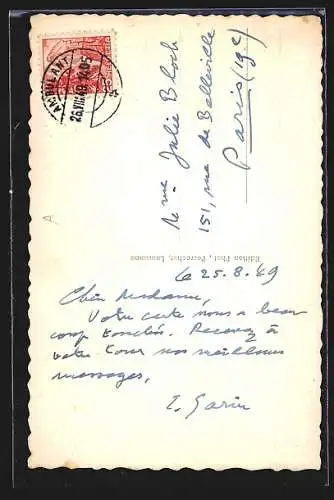 AMBULANT
26.VIII.49.1405
Mme Julie Bloch
151, rue de Belleville
Paris (19e)
Edition Phot. Perrochet, Lausanne
le 25.8.49
Chère Madame,
Votre carte nous a beau
coup touchés. Recevez à
votre tour nos meilleurs
messages,